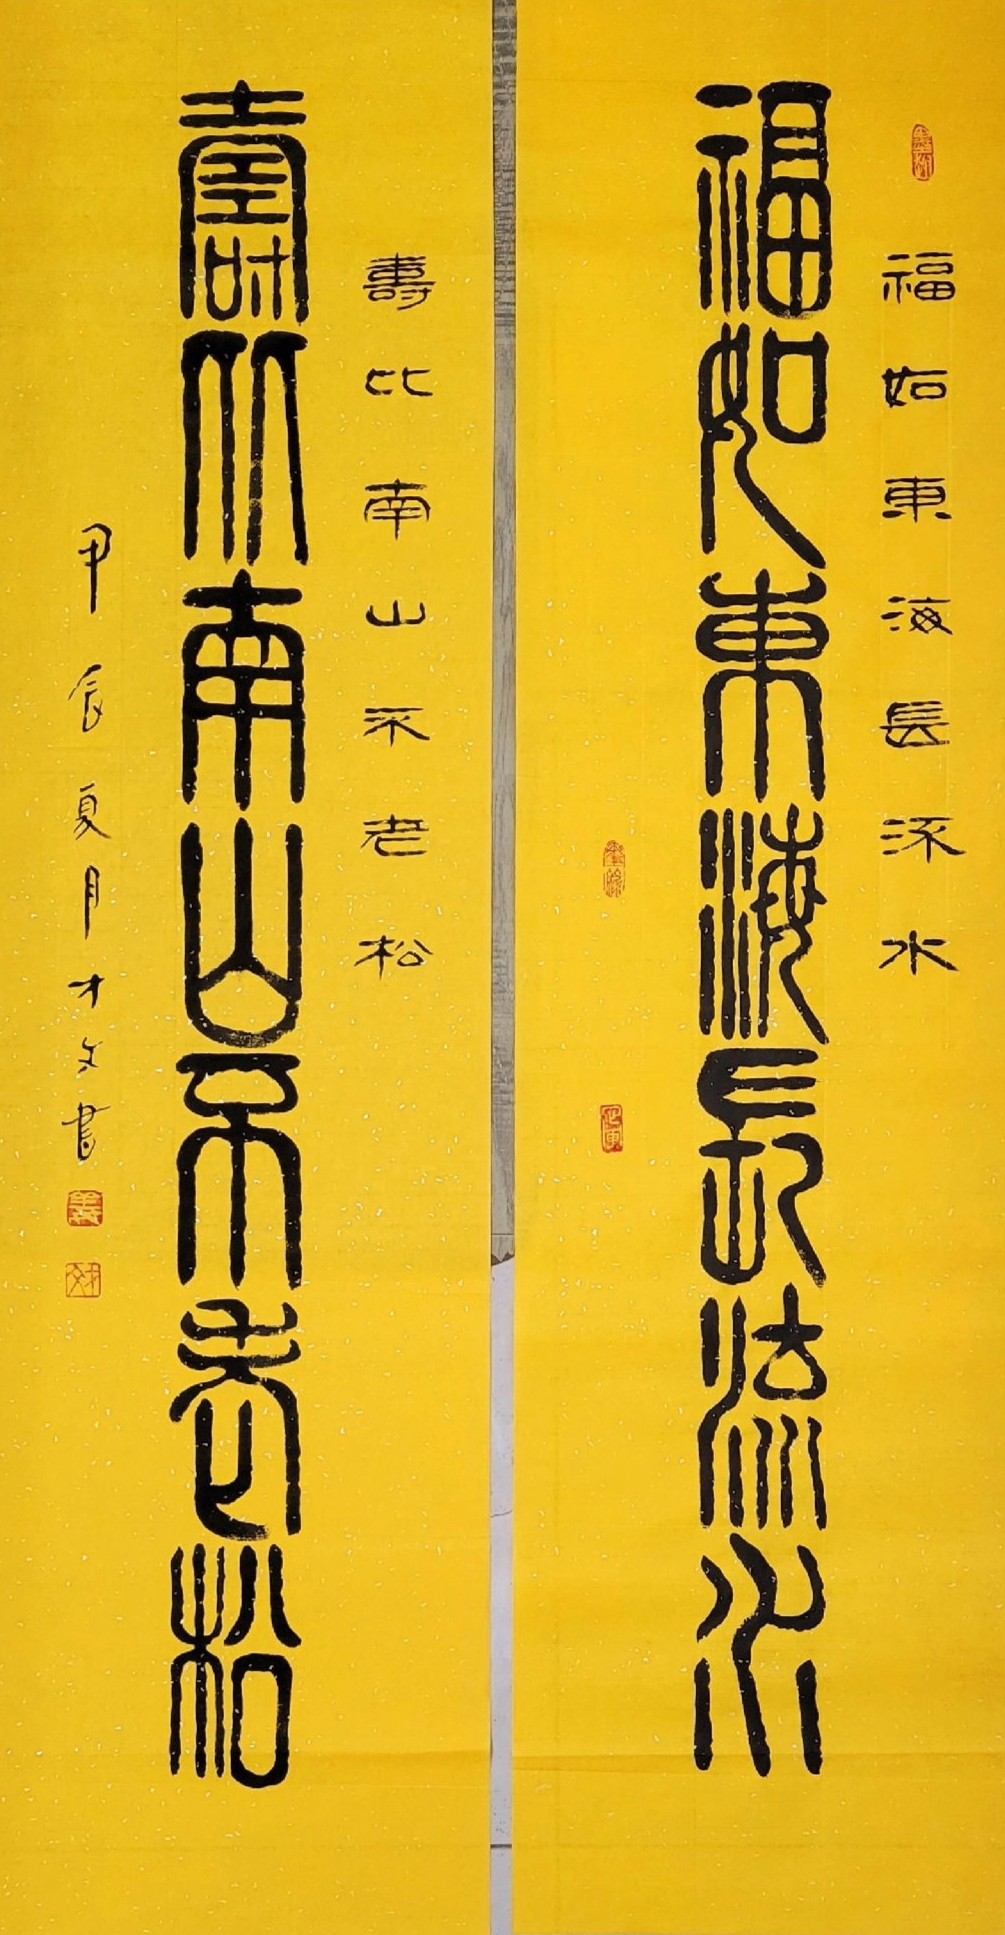 福如東海長流水
福如東海長流水
壽比南山不老松
壽比南山不老松
甲辰夏月才文書